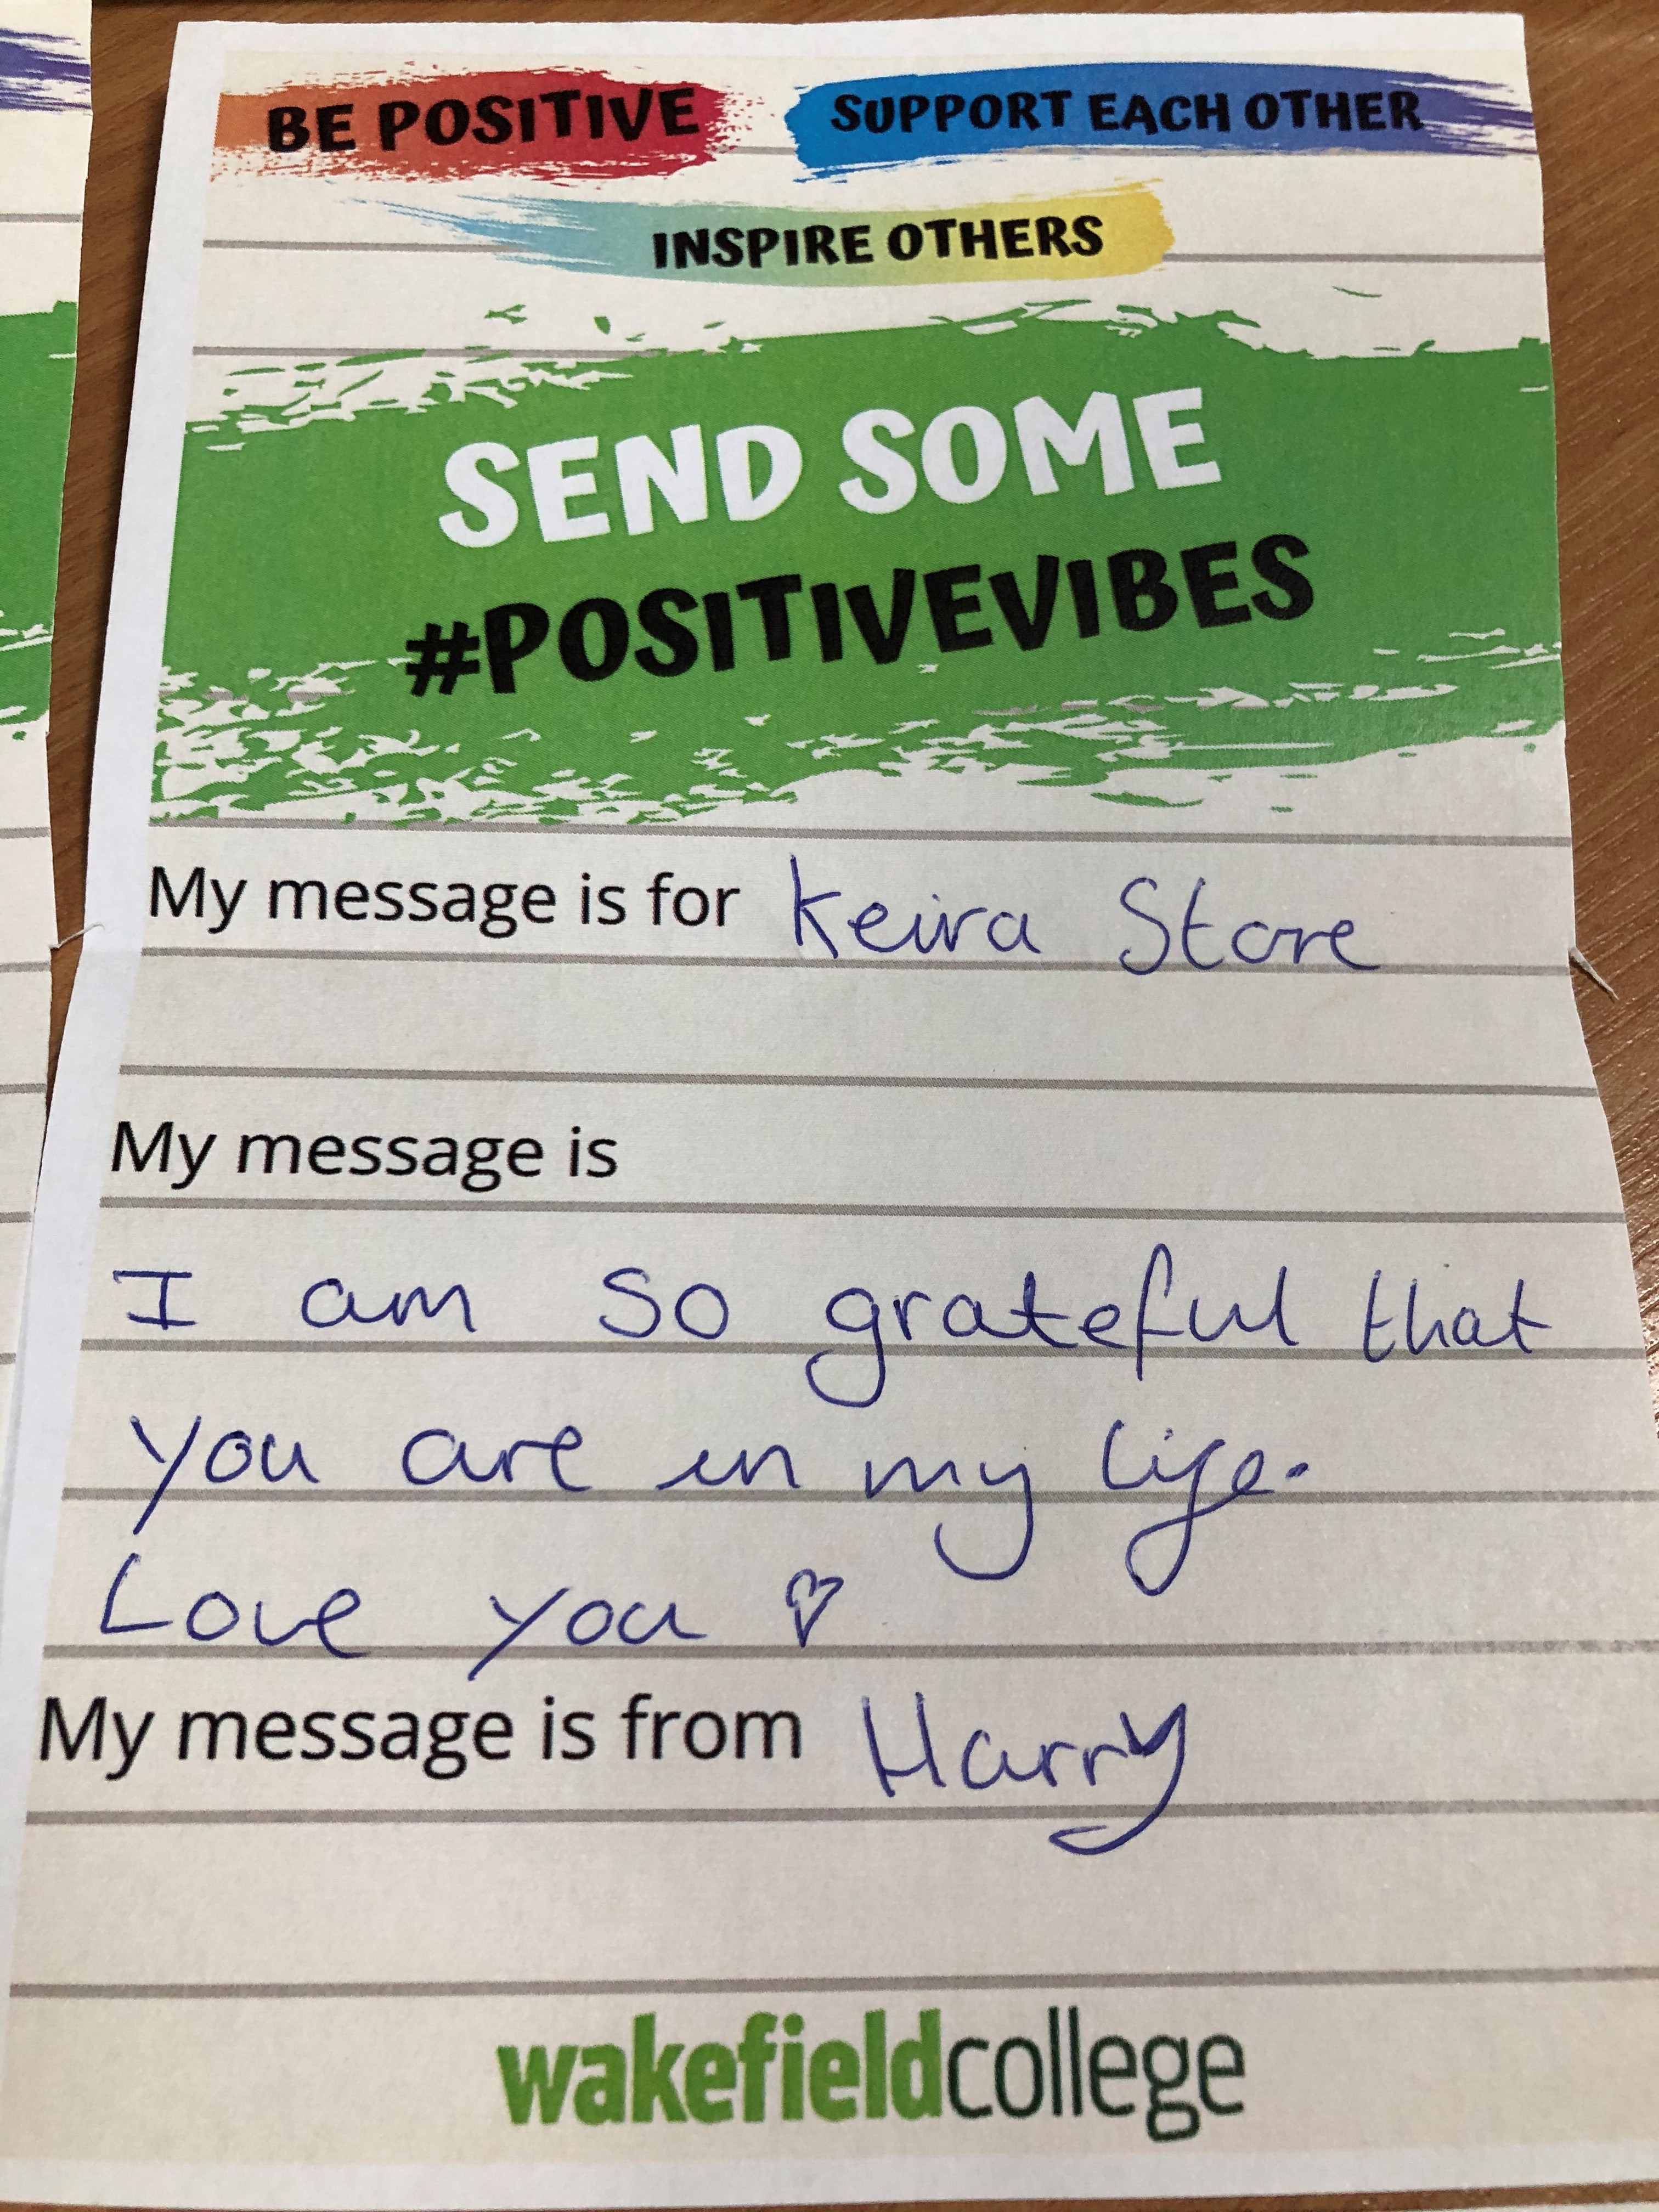 BE POSITIVE SUPPORT EACH OTHER
INSPIRE OTHERS
SEND SOME
#POSITIVEVIBES
My message is for Keira Store
My message is
I am so grateful that
you are in my life.
Love you ♡
My message is from Harry
wakefieldcollege